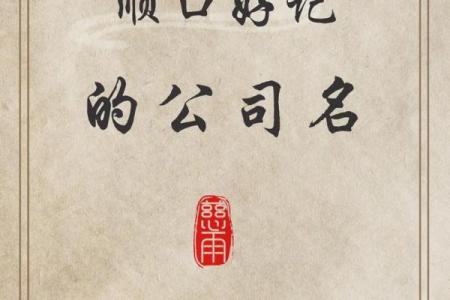 顺口好记
的公司名
慈雨